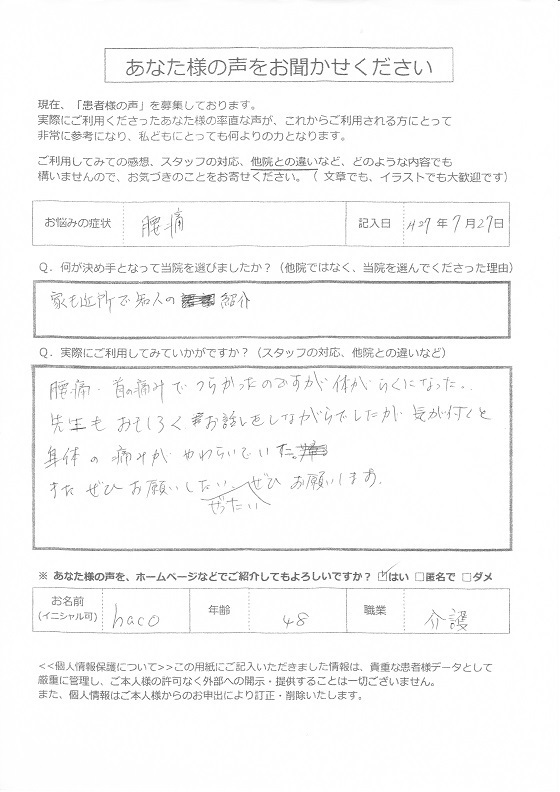 あなた様の声をお聞かせください
現在、「患者様の声」を募集しております。
実際にご利用くださったあなた様の率直な声が、これからご利用される方にとって
非常に参考になり、私どもにとっても何よりの力となります。
ご利用してみての感想、スタッフの対応、他院との違いなど、どのような内容でも
構いませんので、お気づきのことをお寄せください。（ 文章でも、イラストでも大歓迎です）
お悩みの症状 腰痛 記入日 H27 年 7 月 27 日
Q．何が決め手となって当院を選びましたか？（他院ではなく、当院を選んでくださった理由）
家も近所で知人の 紹介
Q．実際にご利用してみていかがですか？（スタッフの対応、他院との違いなど）
腰痛・首の痛みでつらかったのですが体がらくになった。
先生もおもしろくお話しをしながらでしたが気が付くと
身体の痛みがやわらいでいた。
またぜひお願いしたい。ぜひお願いします。
ぜったい
※ あなた様の声を、ホームページなどでご紹介してもよろしいですか？ ☑はい □匿名で □ダメ
お名前 haco 年齢 48 職業 介護
(イニシャル可)
<<個人情報保護について>>この用紙にご記入いただきました情報は、貴重な患者様データとして
厳重に管理し、ご本人様の許可なく外部への開示・提供することは一切ございません。
また、個人情報はご本人様からのお申出により訂正・削除いたします。